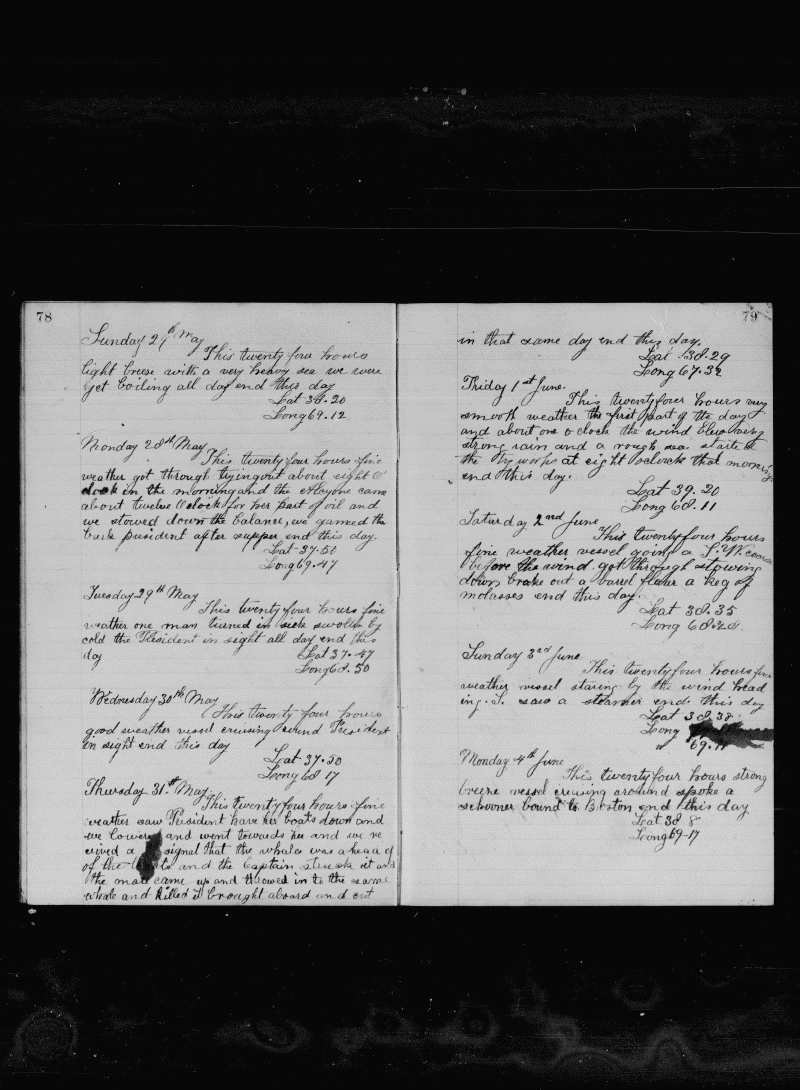 78
Sunday 27th May
This twenty four hours
light breese with a very heavy sea we were
yet boiling all day end this day
Lat 38.20
Long 69.12
Monday 28th May
This twenty four hours fine
weather got through trying out about eight O
clock in the morning and the Alcyone came
about twelve Oclock for her part of oil and
we stowed down the balance, we gamed the
bark president after supper end this day.
Lat 37.50
Long 69.47
Tuesday 29th May
This twenty four hours fine
weather one man turned in sick swollen by
cold the President in sight all day end this
day
Lat 37.47
Long 68.50
Wednesday 30th May
This twenty four hours
good weather vessel cruising around President
in sight end this day
Lat 37.50
Long 68 17
Thursday 31.st May.
This twenty four hours fine
weather saw President have her boats down and
we lowered and went towards her and we re
ceived a signal that the whales was ahead of
of the boats and the Captain struck it and
the mate came up and throwed in to the same
whale and killed it brought aboard and cut
79
in that same day end this day.
Lat 38.29
Long 67.32
Friday 1st June.
This twenty four hours very
smooth weather the first part of the day
and about one o clock the wind blew very
strong rain and a rough sea started
the try works at eight oclock that morning
end this day.
Lat 39.20
Long 68.11
Saturday 2nd June
This twenty four hours
fine weather vessel going a S.W. course
before the wind got through stowing
down broke out a barrel flour a keg of
molasses end this day.
Lat 38.35
Long 68.20
Sunday 3rd June
This twenty four hours fine
weather vessel staring by the wind head
ing S. saw a steamer end this day
Lat 38.38
Long
" 69.11
Monday 4th June
This twenty four hours strong
breese vessel crusing around spoke a
schooner bound to Boston end this day
Lat 38 8
Long 69-17